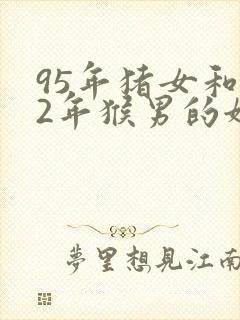 95年猪女和
2年猴男的
夢里想見江南